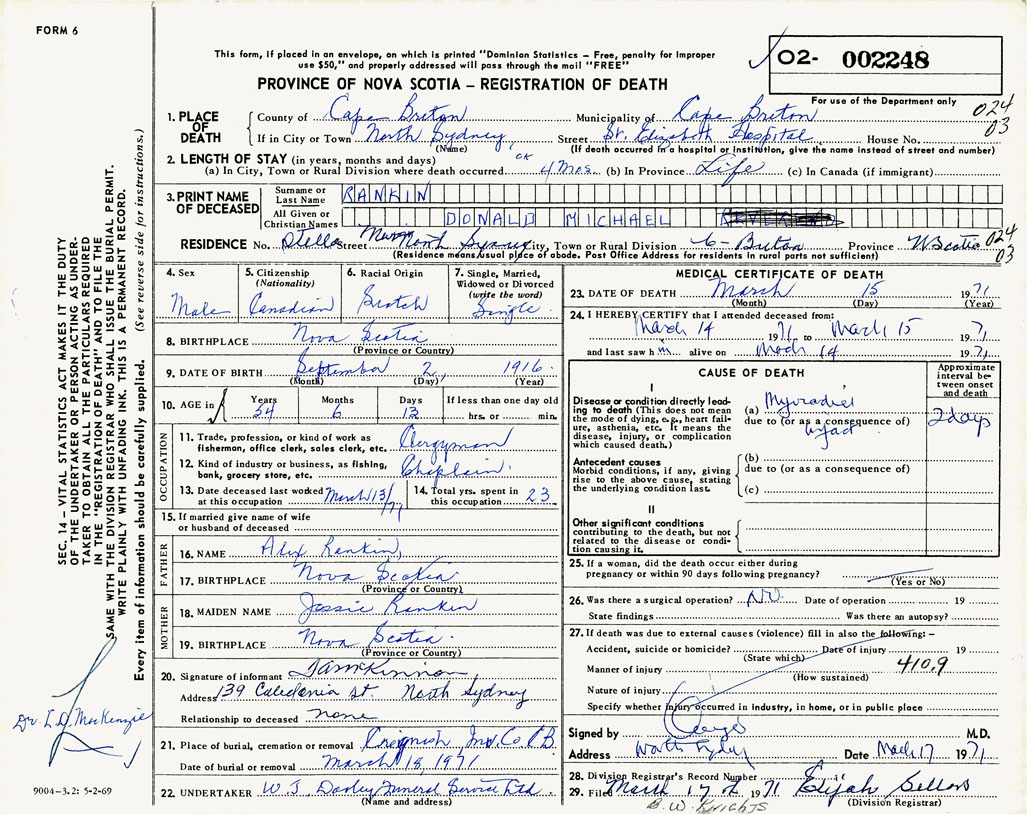 FORM 6
This form, if placed in an envelope, on which is printed "Dominion Statistics – Free, penalty for improper
use $50," and properly addressed will pass through the mail "FREE"
PROVINCE OF NOVA SCOTIA – REGISTRATION OF DEATH
02- 002248
For use of the Department only
024
03
1. PLACE OF DEATH
County of Cape Breton Municipality of Cape Breton
If in City or Town North Sydney, Street St. Elizabeth Hospital House No.
(Name) (If death occurred in a hospital or institution, give the name instead of street and number)
2. LENGTH OF STAY (in years, months and days) OK
(a) In City, Town or Rural Division where death occurred 4 Mos. (b) In Province Life (c) In Canada (if immigrant)
3. PRINT NAME OF DECEASED
Surname or Last Name RANKIN
All Given or Christian Names DONALD MICHAEL
RESIDENCE No. Stella Street North Sydney City, Town or Rural Division C-Breton Province N. Scotia 024
03
(Residence means usual place of abode. Post Office Address for residents in rural parts not sufficient)
4. Sex Male
5. Citizenship (Nationality) Canadian
6. Racial Origin Scotch
7. Single, Married, Widowed or Divorced (write the word) Single
8. BIRTHPLACE Nova Scotia
(Province or Country)
9. DATE OF BIRTH September 2, 1916
(Month) (Day) (Year)
10. AGE in Years 54 Months 6 Days 13 If less than one day old hrs. or min.
OCCUPATION
11. Trade, profession, or kind of work as
fisherman, office clerk, sales clerk, etc. Clergyman
12. Kind of industry or business, as fishing,
bank, grocery store, etc. Chaplain.
13. Date deceased last worked at this occupation March 13/71
14. Total yrs. spent in this occupation 23
15. If married give name of wife
or husband of deceased
FATHER
16. NAME Alex Rankin,
17. BIRTHPLACE Nova Scotia.
(Province or Country)
MOTHER
18. MAIDEN NAME Jessie Rankin
19. BIRTHPLACE Nova Scotia.
(Province or Country)
20. Signature of informant
Address 139 Caledonia st North Sydney
Relationship to deceased none
21. Place of burial, cremation or removal Creignish, Inv. Co C.B.
Date of burial or removal March 18, 1971
22. UNDERTAKER W. J. Dooley Funeral Service Ltd.
(Name and address)
MEDICAL CERTIFICATE OF DEATH
23. DATE OF DEATH March 15 1971
(Month) (Day) (Year)
24. I HEREBY CERTIFY that I attended deceased from:
March 14 1971 to March 15 1971
and last saw him alive on March 14 1971
CAUSE OF DEATH
Approximate interval between onset and death
I
Disease or condition directly leading to death (This does not mean the mode of dying, e.g., heart failure, asthenia, etc. It means the disease, injury, or complication which caused death.)
(a) Myocardial
due to (or as a consequence of)
infarct
2 days
Antecedent causes
Morbid conditions, if any, giving rise to the above cause, stating the underlying condition last.
(b)
due to (or as a consequence of)
(c)
II
Other significant conditions
contributing to the death, but not related to the disease or condition causing it.
25. If a woman, did the death occur either during
pregnancy or within 90 days following pregnancy?
(Yes or No)
26. Was there a surgical operation? No. Date of operation 19
State findings Was there an autopsy?
27. If death was due to external causes (violence) fill in also the following: –
Accident, suicide or homicide? Date of injury 19
(State which)
Manner of injury 410.9
(How sustained)
Nature of injury
Specify whether injury occurred in industry, in home, or in public place
Signed by M.D.
Address North Sydney Date March 17 1971
28. Division Registrar's Record Number
29. Filed March 17 1971 Elijah Sellars
(Division Registrar)
B. W. Knights
SEC. 14 – VITAL STATISTICS ACT MAKES IT THE DUTY
OF THE UNDERTAKER OR PERSON ACTING AS UNDER-
TAKER TO OBTAIN ALL THE PARTICULARS REQUIRED
IN THE "REGISTRATION OF DEATH" AND TO FILE THE
SAME WITH THE DIVISION REGISTRAR WHO SHALL ISSUE THE BURIAL PERMIT.
WRITE PLAINLY WITH UNFADING INK. THIS IS A PERMANENT RECORD.
Every item of information should be carefully supplied. (See reverse side for instructions.)
Dr. L.D. MacKenzie
9004-3.2: 5-2-69